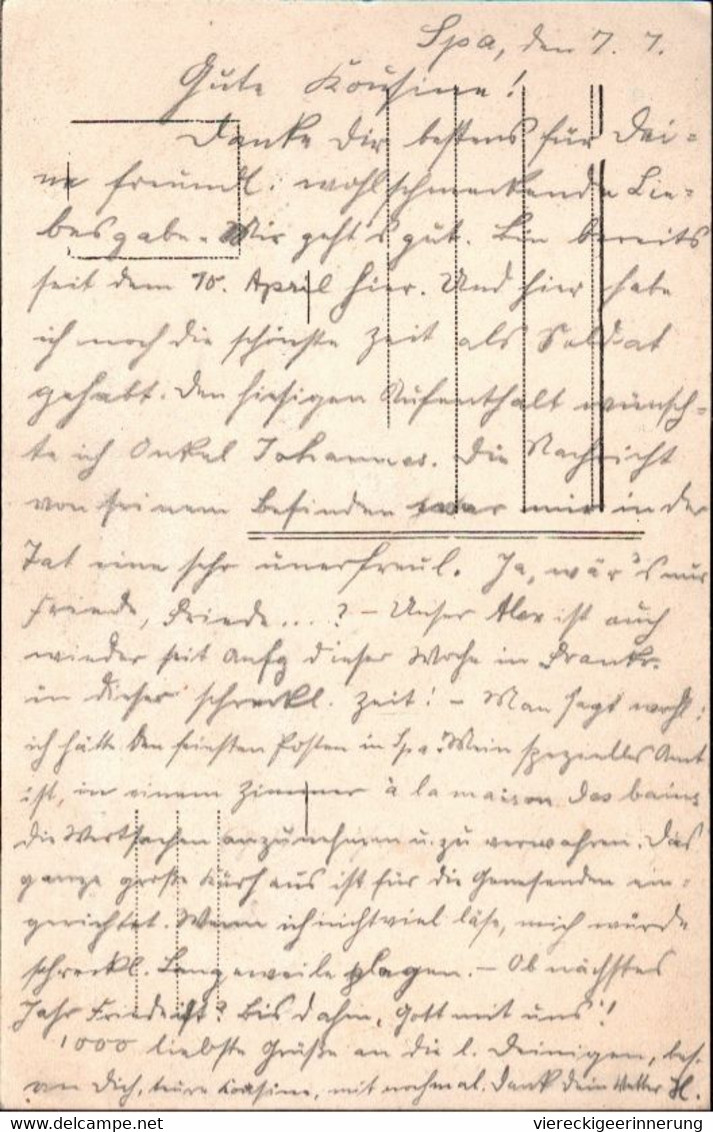 Spa, den 7. 7.
Gute Kousine!
Danke Dir bestens für Dei-
ne freundl. wohlschmeckende Lie-
besgabe. Mir geht's gut. Bin bereits
seit dem 10. April hier. Und hier habe
ich noch die schönste Zeit als Soldat
gehabt. Den hiesigen Aufenthalt wünsch-
te ich Onkel Johannes. Die Nachricht
von seinem Befinden war mir in der
Tat eine sehr unerfreul. Ja, wär's nur
Friede, Friede...? – Unser Alex ist auch
wieder seit Anfg dieser Woche in Frankr.
in dieser schreckl. Zeit! – Man sagt wohl:
ich hätte den feinsten Posten in Spa. Mein spezielles Amt
ist, in einem Zimmer à la maison des bains
die Wertsachen anzunehmen u. zu verwahren. Das
ganze große Kurhaus ist für die Genesenden ein-
gerichtet. Wenn ich nicht viel läse, mich würde
schreckl. Langeweile plagen. – Ob nächstes
Jahr Friede ist? Bis dahin, Gott mit uns!
1000 liebste Grüße an die l. Deinigen, bes.
an Dich, teure Kousine, mit nochmal. Dank Dein Vetter
viereckigeerinnerung